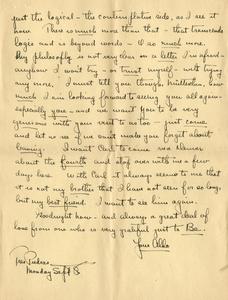 just the logical – the contemplative side, as I see it
now. There is much more than that – that transcends
logic and is beyond words – O so much more.
My philosophy is not very clear on a letter I'm afraid –
anyhow I won't try – or trust myself – with trying
any more. I must tell you though, how
much I am looking forward to seeing you all again –
especially you – and we want you to be very
generous with your visit to us too – just come
and let no one if we can't make you forget about
leaving. I want Carl to come via Denver
about the fourth and stop over with us a few
days here. With Carl it always seems to me that
it is not my brother that I have not seen for so long,
but my best friend. I want to see him again.
Goodnight now – and always a great deal of
love from one who is very grateful just to Be.
Monday Sept 8